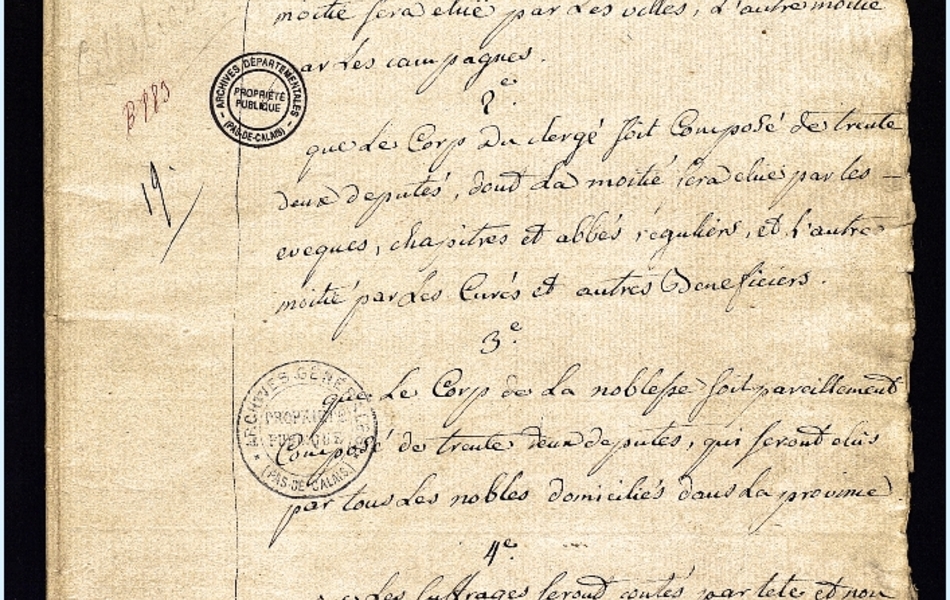 moitié sera eluë par Les villes, L'autre moitié
par Les campagnes.
2e.
que Le Corp Du clergé soit Composé de trente
deux deputés, dont La moitié sera eluë par les
eveques, chapitres et abbés réguliers, et L'autre
moitié par Les Curés et autres Beneficiers.
3e.
que Le Corp de La noblesse soit pareillement
Composé de trente deux deputés, qui seront elus
par tous Les nobles domiciliés dans La province.
4e.
Les suffrages seront contés par tete et non
B 885
19.
ARCHIVES DÉPARTEMENTALES
PROPRIÉTÉ
PUBLIQUE
(PAS-DE-CALAIS)
PROPRIÉTÉ
PUBLIQUE
(PAS-DE-CALAIS)